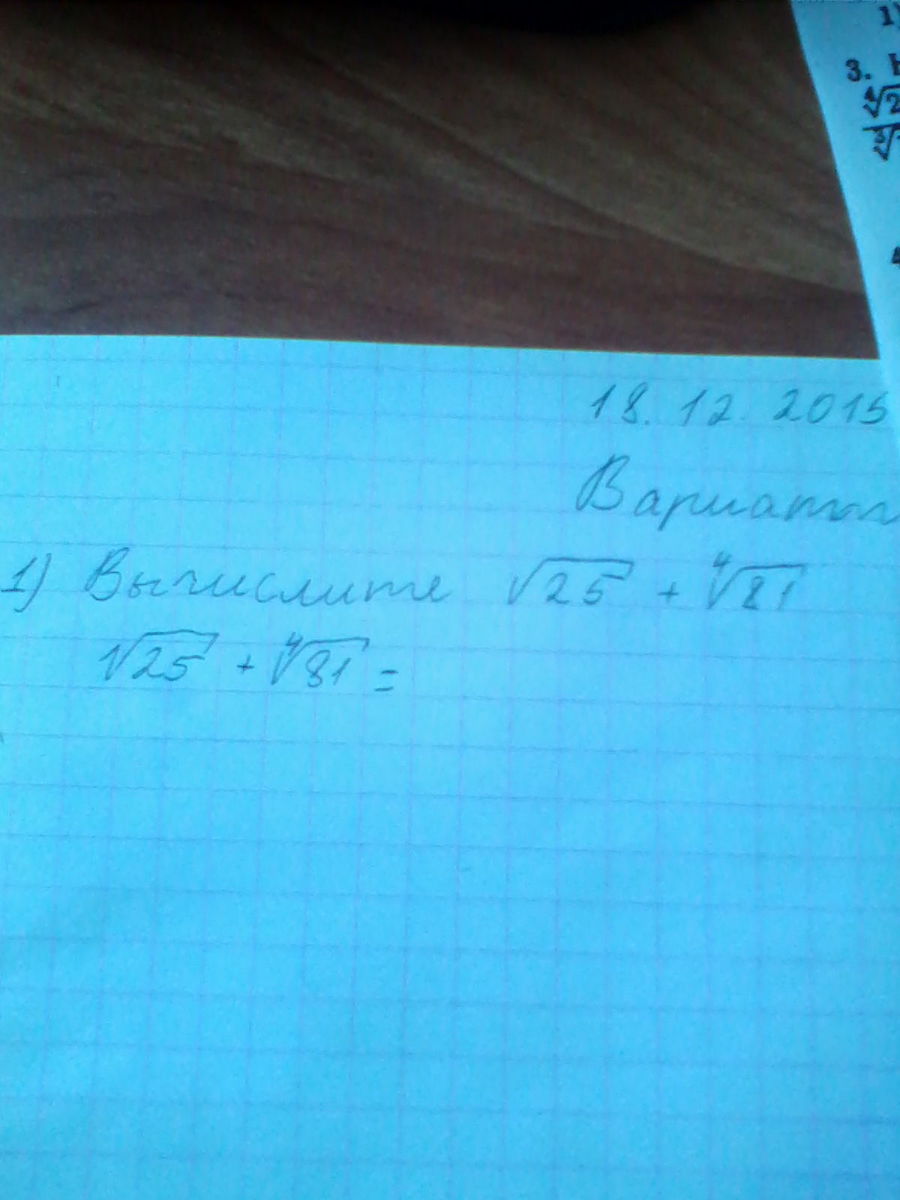 1)
3.
∜2
18.12.2015
Вариант
1) Вычислите √25 + ∜81
√25 + ∜81 =